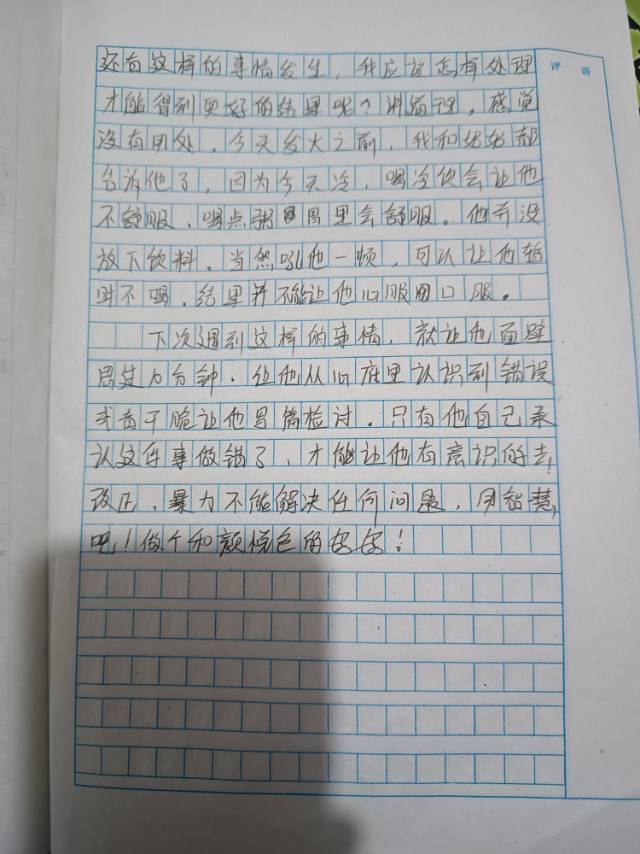 评 语
还有这样的事情发生，我应该怎样处理
才能得到更好的结果呢？讲道理，感觉
没有用处，今天发火之前，我和姥姥都
告诉他了，因为今天冷，喝冷饮会让他
不舒服，喝点粥胃里会舒服。他并没
放下饮料，当然吼他一顿，可以让他暂
时不喝，结果并不能让他心服口服。
下次遇到这样的事情，就让他面壁
思过10分钟，让他从心底里认识到错误
或者干脆让他写篇检讨，只有他自己承
认这件事做错了，才能让他有意识的去
改正，暴力不能解决任何问题，用智慧
吧！做个和颜悦色的妈妈！